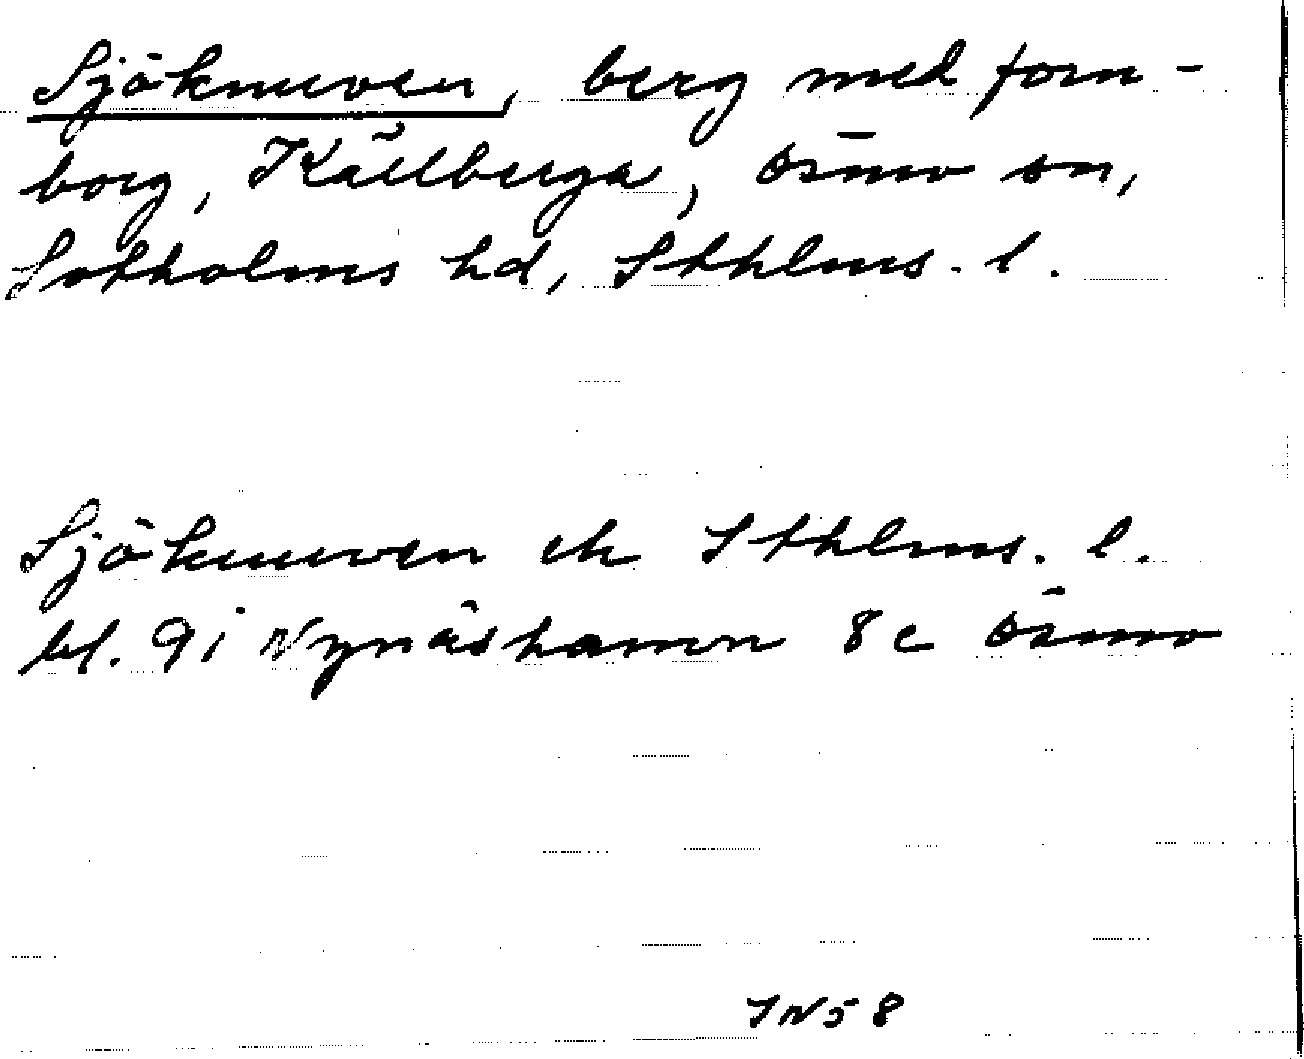 Sjöknuven, berg med forn-
borg, Källberga, Ösmo sn,
Sotholms hd, Sthlms. l.
Sjöknuven ek Sthlms. l.
bl. 9i Nynäshamn 8c Ösmo
JN58